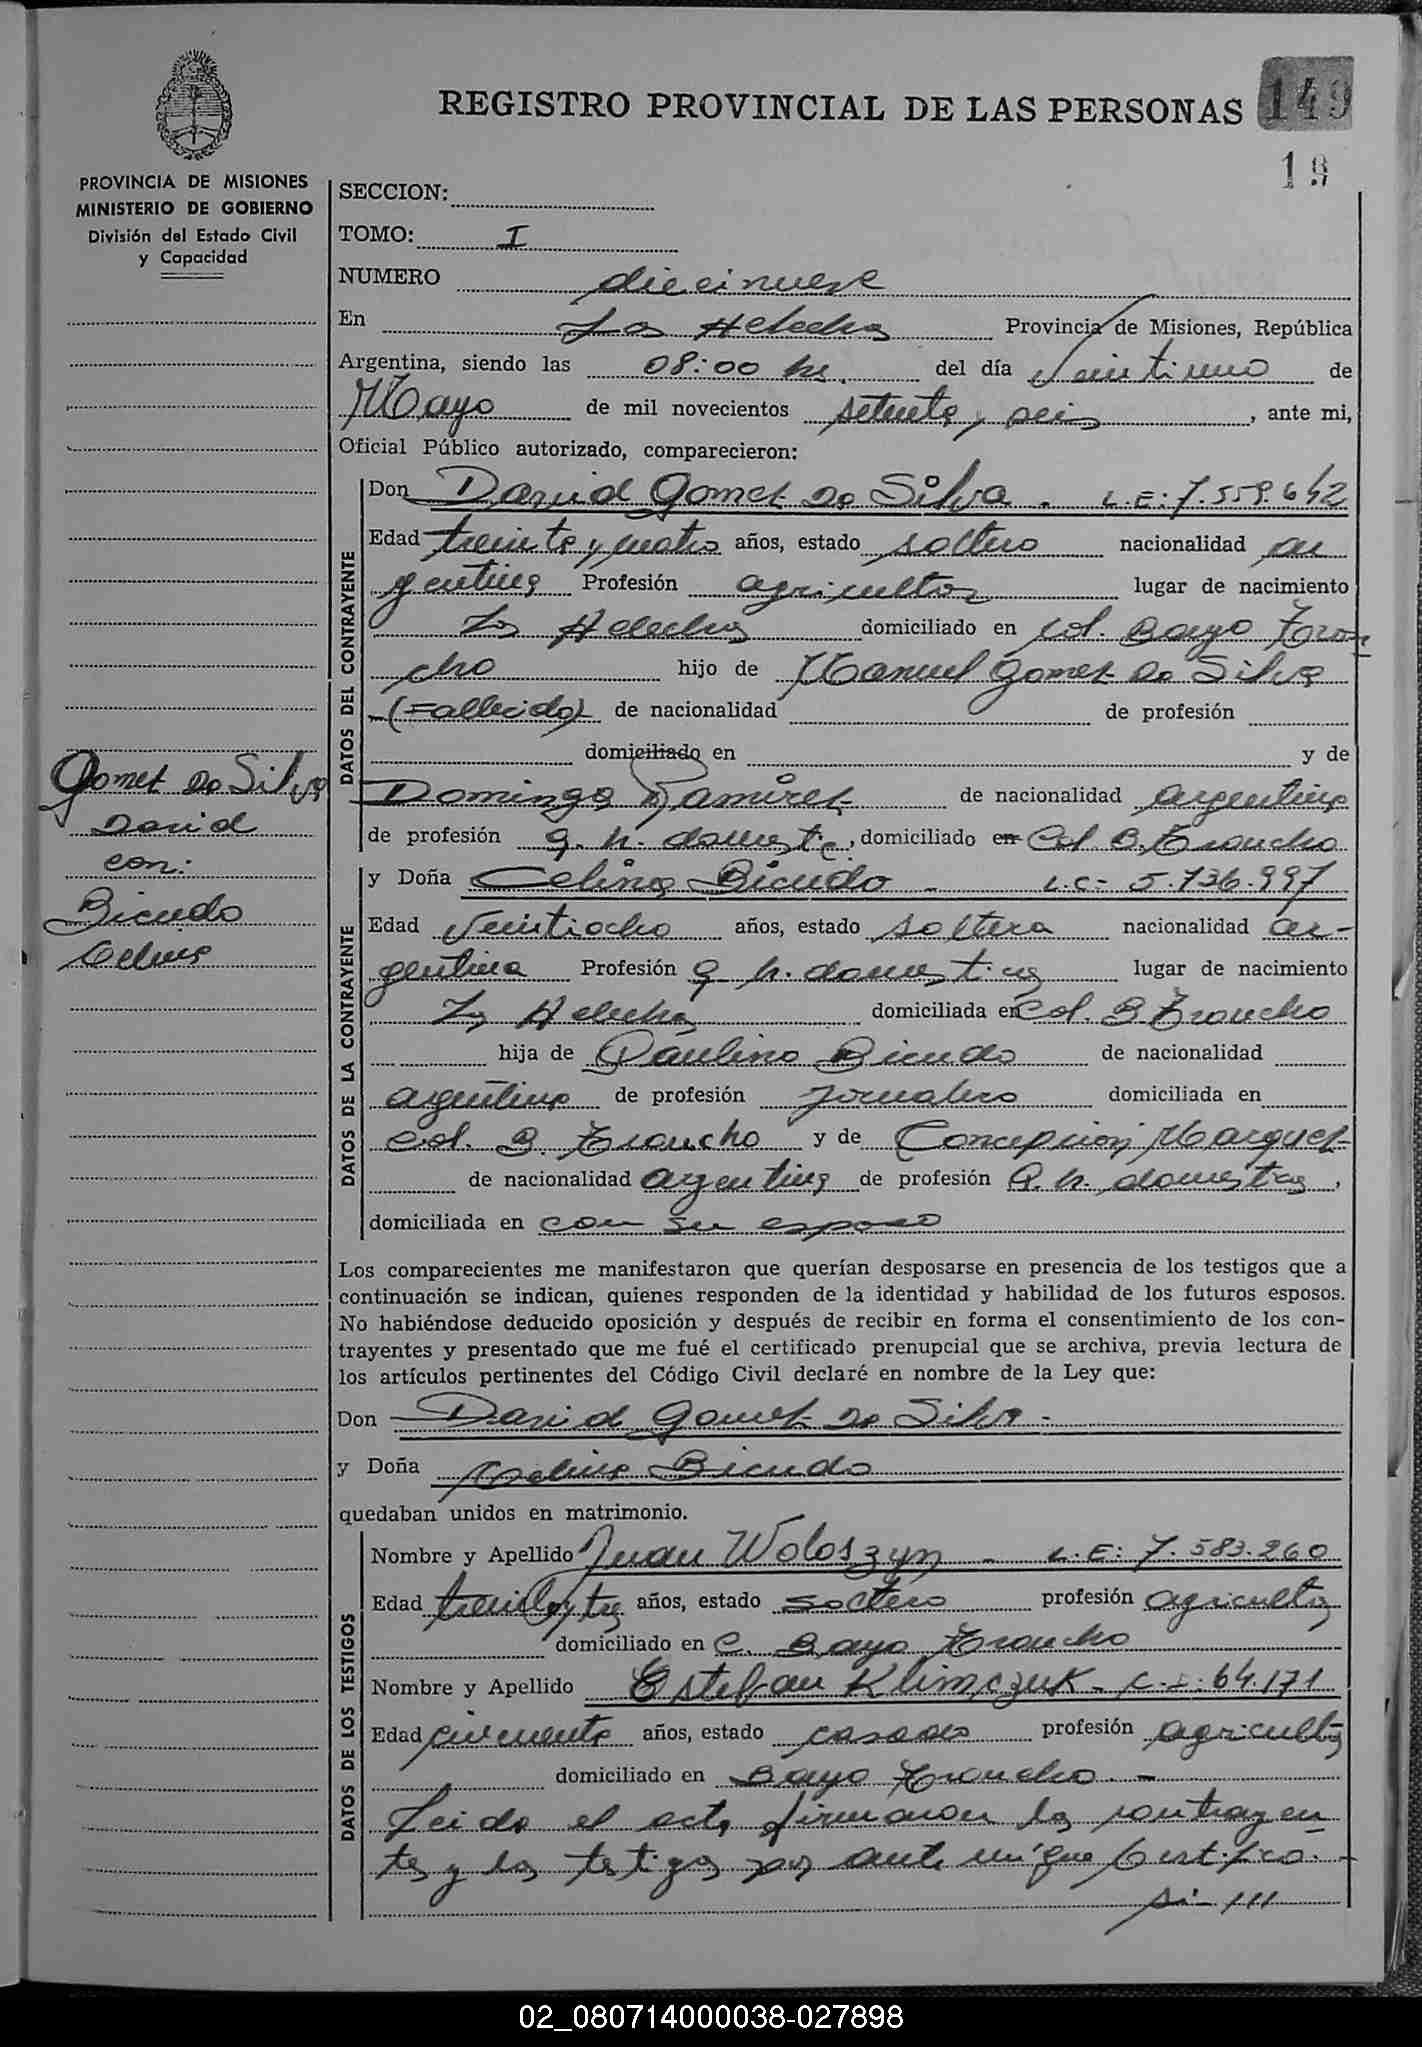 REGISTRO PROVINCIAL DE LAS PERSONAS
149
19
PROVINCIA DE MISIONES
MINISTERIO DE GOBIERNO
División del Estado Civil
y Capacidad
SECCION:
TOMO: I
NUMERO diecinueve
En Los Helechos Provincia de Misiones, República
Argentina, siendo las 08:00 hs. del día Veintiuno de
Mayo de mil novecientos setenta y seis, ante mi,
Oficial Público autorizado, comparecieron:
DATOS DEL CONTRAYENTE
Don David Gomez Da Silva. L.E: 7.559.642
Edad treinta y cuatro años, estado soltero nacionalidad ar
gentina Profesión agricultor lugar de nacimiento
Los Helechos domiciliado en Col. Bayo Tron
cho hijo de Manuel Gomez Da Silva
(Fallecido) de nacionalidad de profesión
domiciliado en y de
Dominga Ramirez de nacionalidad argentina
de profesión q. h. domestic, domiciliado en Col. B. Troncho
Gomez Da Silva
David
con:
Bicudo
Celina
DATOS DE LA CONTRAYENTE
y Doña Celina Bicudo - L.C- 5.736.997
Edad Veintiocho años, estado soltera nacionalidad ar-
gentina Profesión q h. domesticas lugar de nacimiento
Los Helechos domiciliada en Col. B Troncho
hija de Paulino Bicudo de nacionalidad
argentino de profesión Jornalero domiciliada en
Col. B. Troncho y de Concepcion Marquez
de nacionalidad argentina de profesión Q. h. domesticas,
domiciliada en con su esposo
Los comparecientes me manifestaron que querían desposarse en presencia de los testigos que a
continuación se indican, quienes responden de la identidad y habilidad de los futuros esposos.
No habiéndose deducido oposición y después de recibir en forma el consentimiento de los con-
trayentes y presentado que me fué el certificado prenupcial que se archiva, previa lectura de
los artículos pertinentes del Código Civil declaré en nombre de la Ley que:
Don David Gomez Da Silva -
y Doña Celina Bicudo
quedaban unidos en matrimonio.
DATOS DE LOS TESTIGOS
Nombre y Apellido Juan Woloszyn - L.E: 7.583.260
Edad treinta y tres años, estado soltero profesión agricultor
domiciliado en C. Bayo Troncho
Nombre y Apellido Estefan Klimczuk - C.I: 64.171
Edad cincuenta años, estado casado profesión agricultor
domiciliado en Bayo Troncho. -
Leida el acta firmaron los contrayen
tes y los testigos por ante mí que Certifico. -
si- ///
02_080714000038-027898